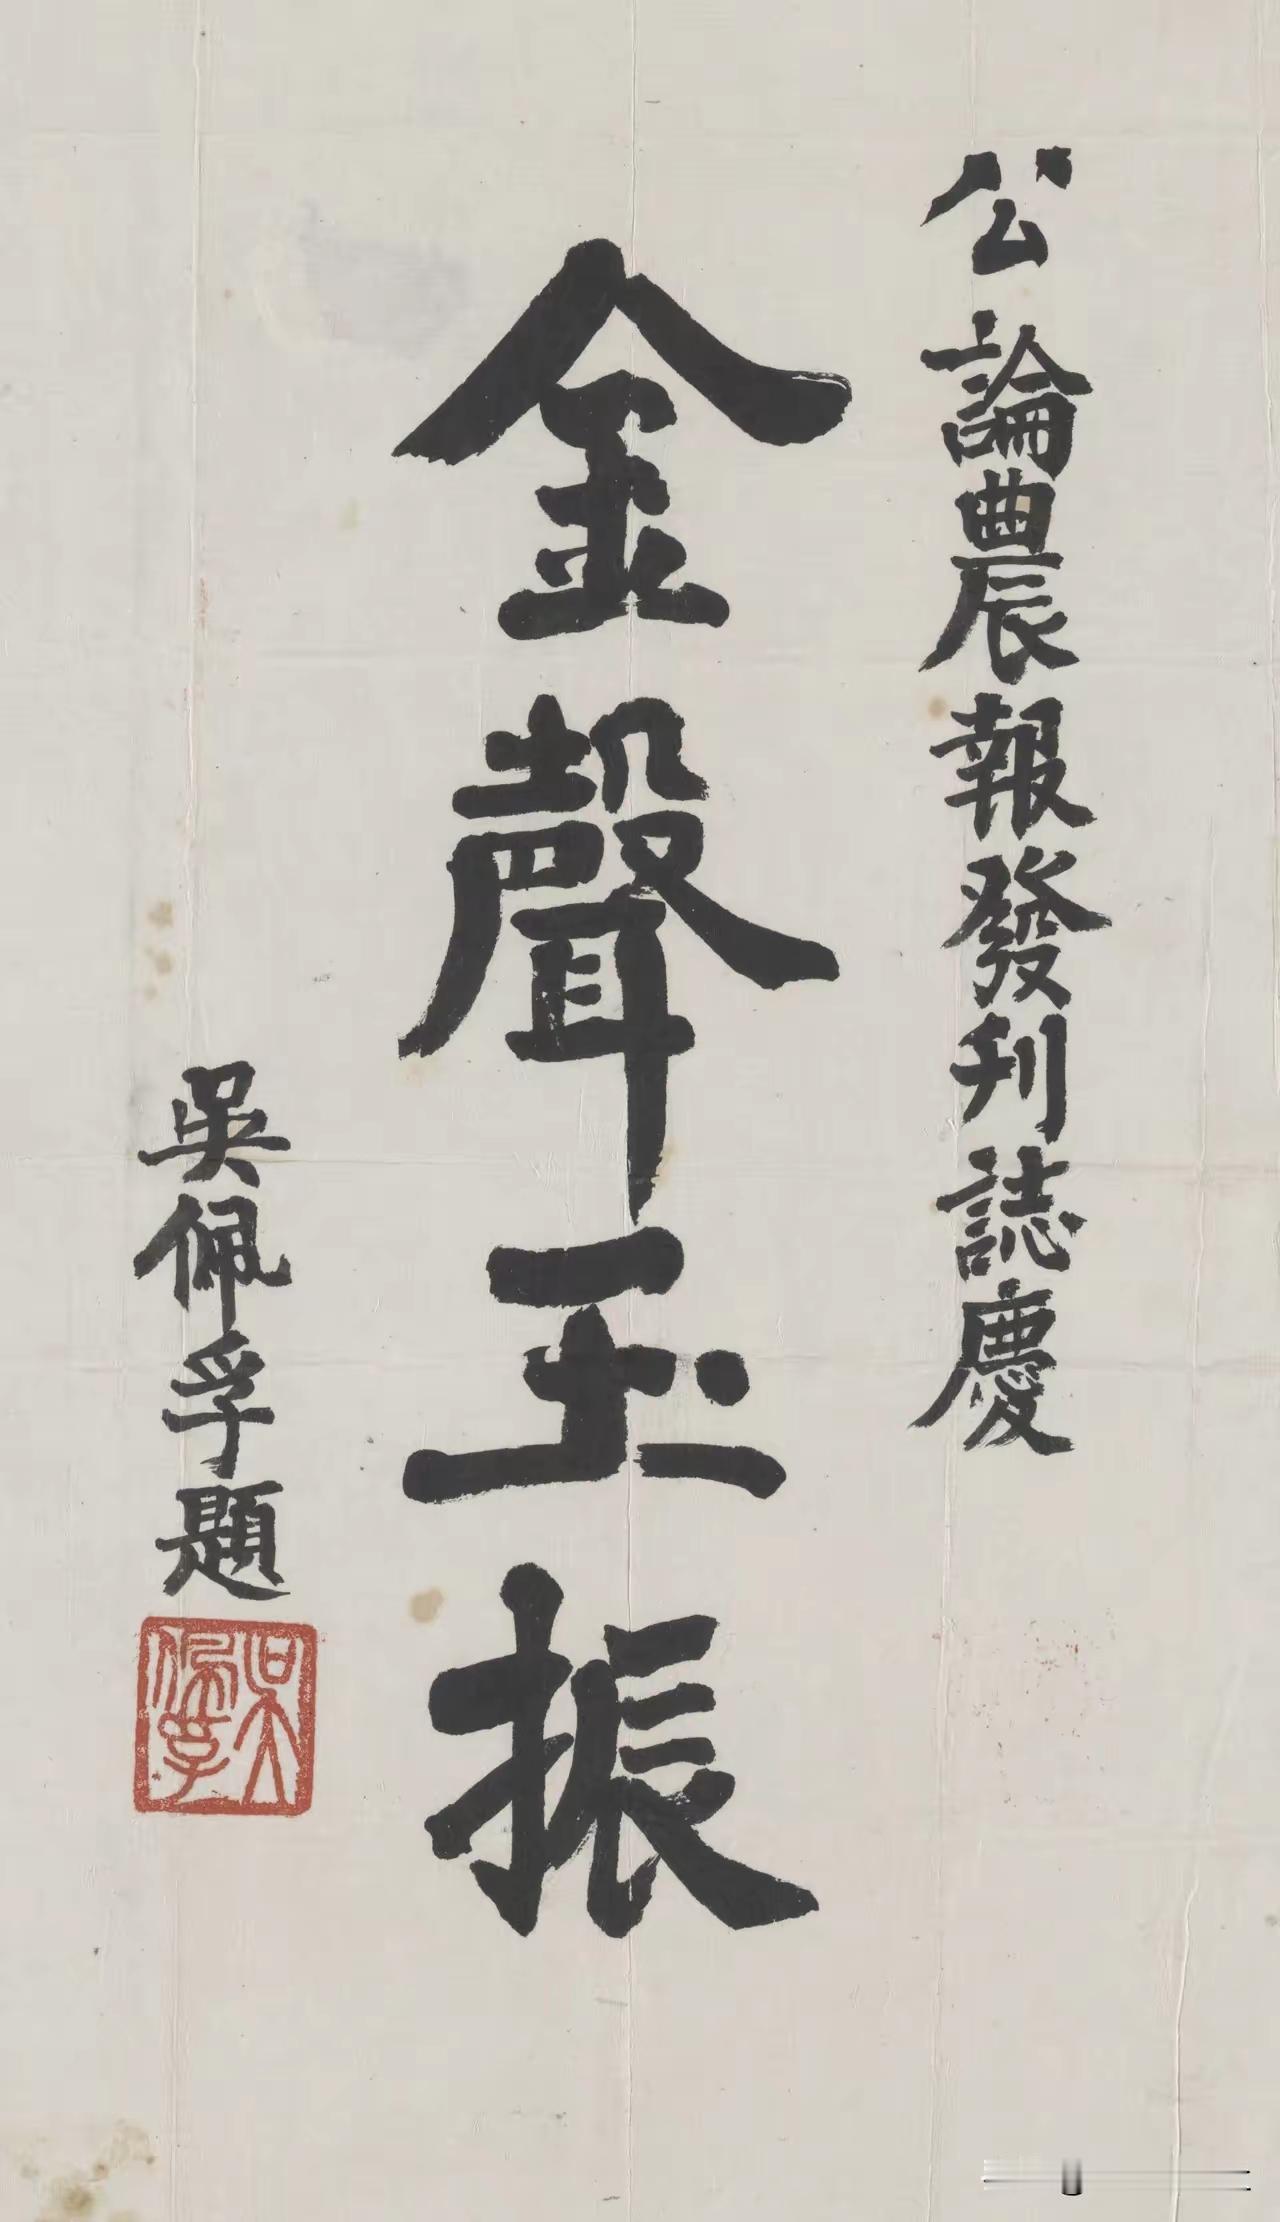 公論農報發刊誌慶
金聲玉振
吳佩孚題
吳佩孚